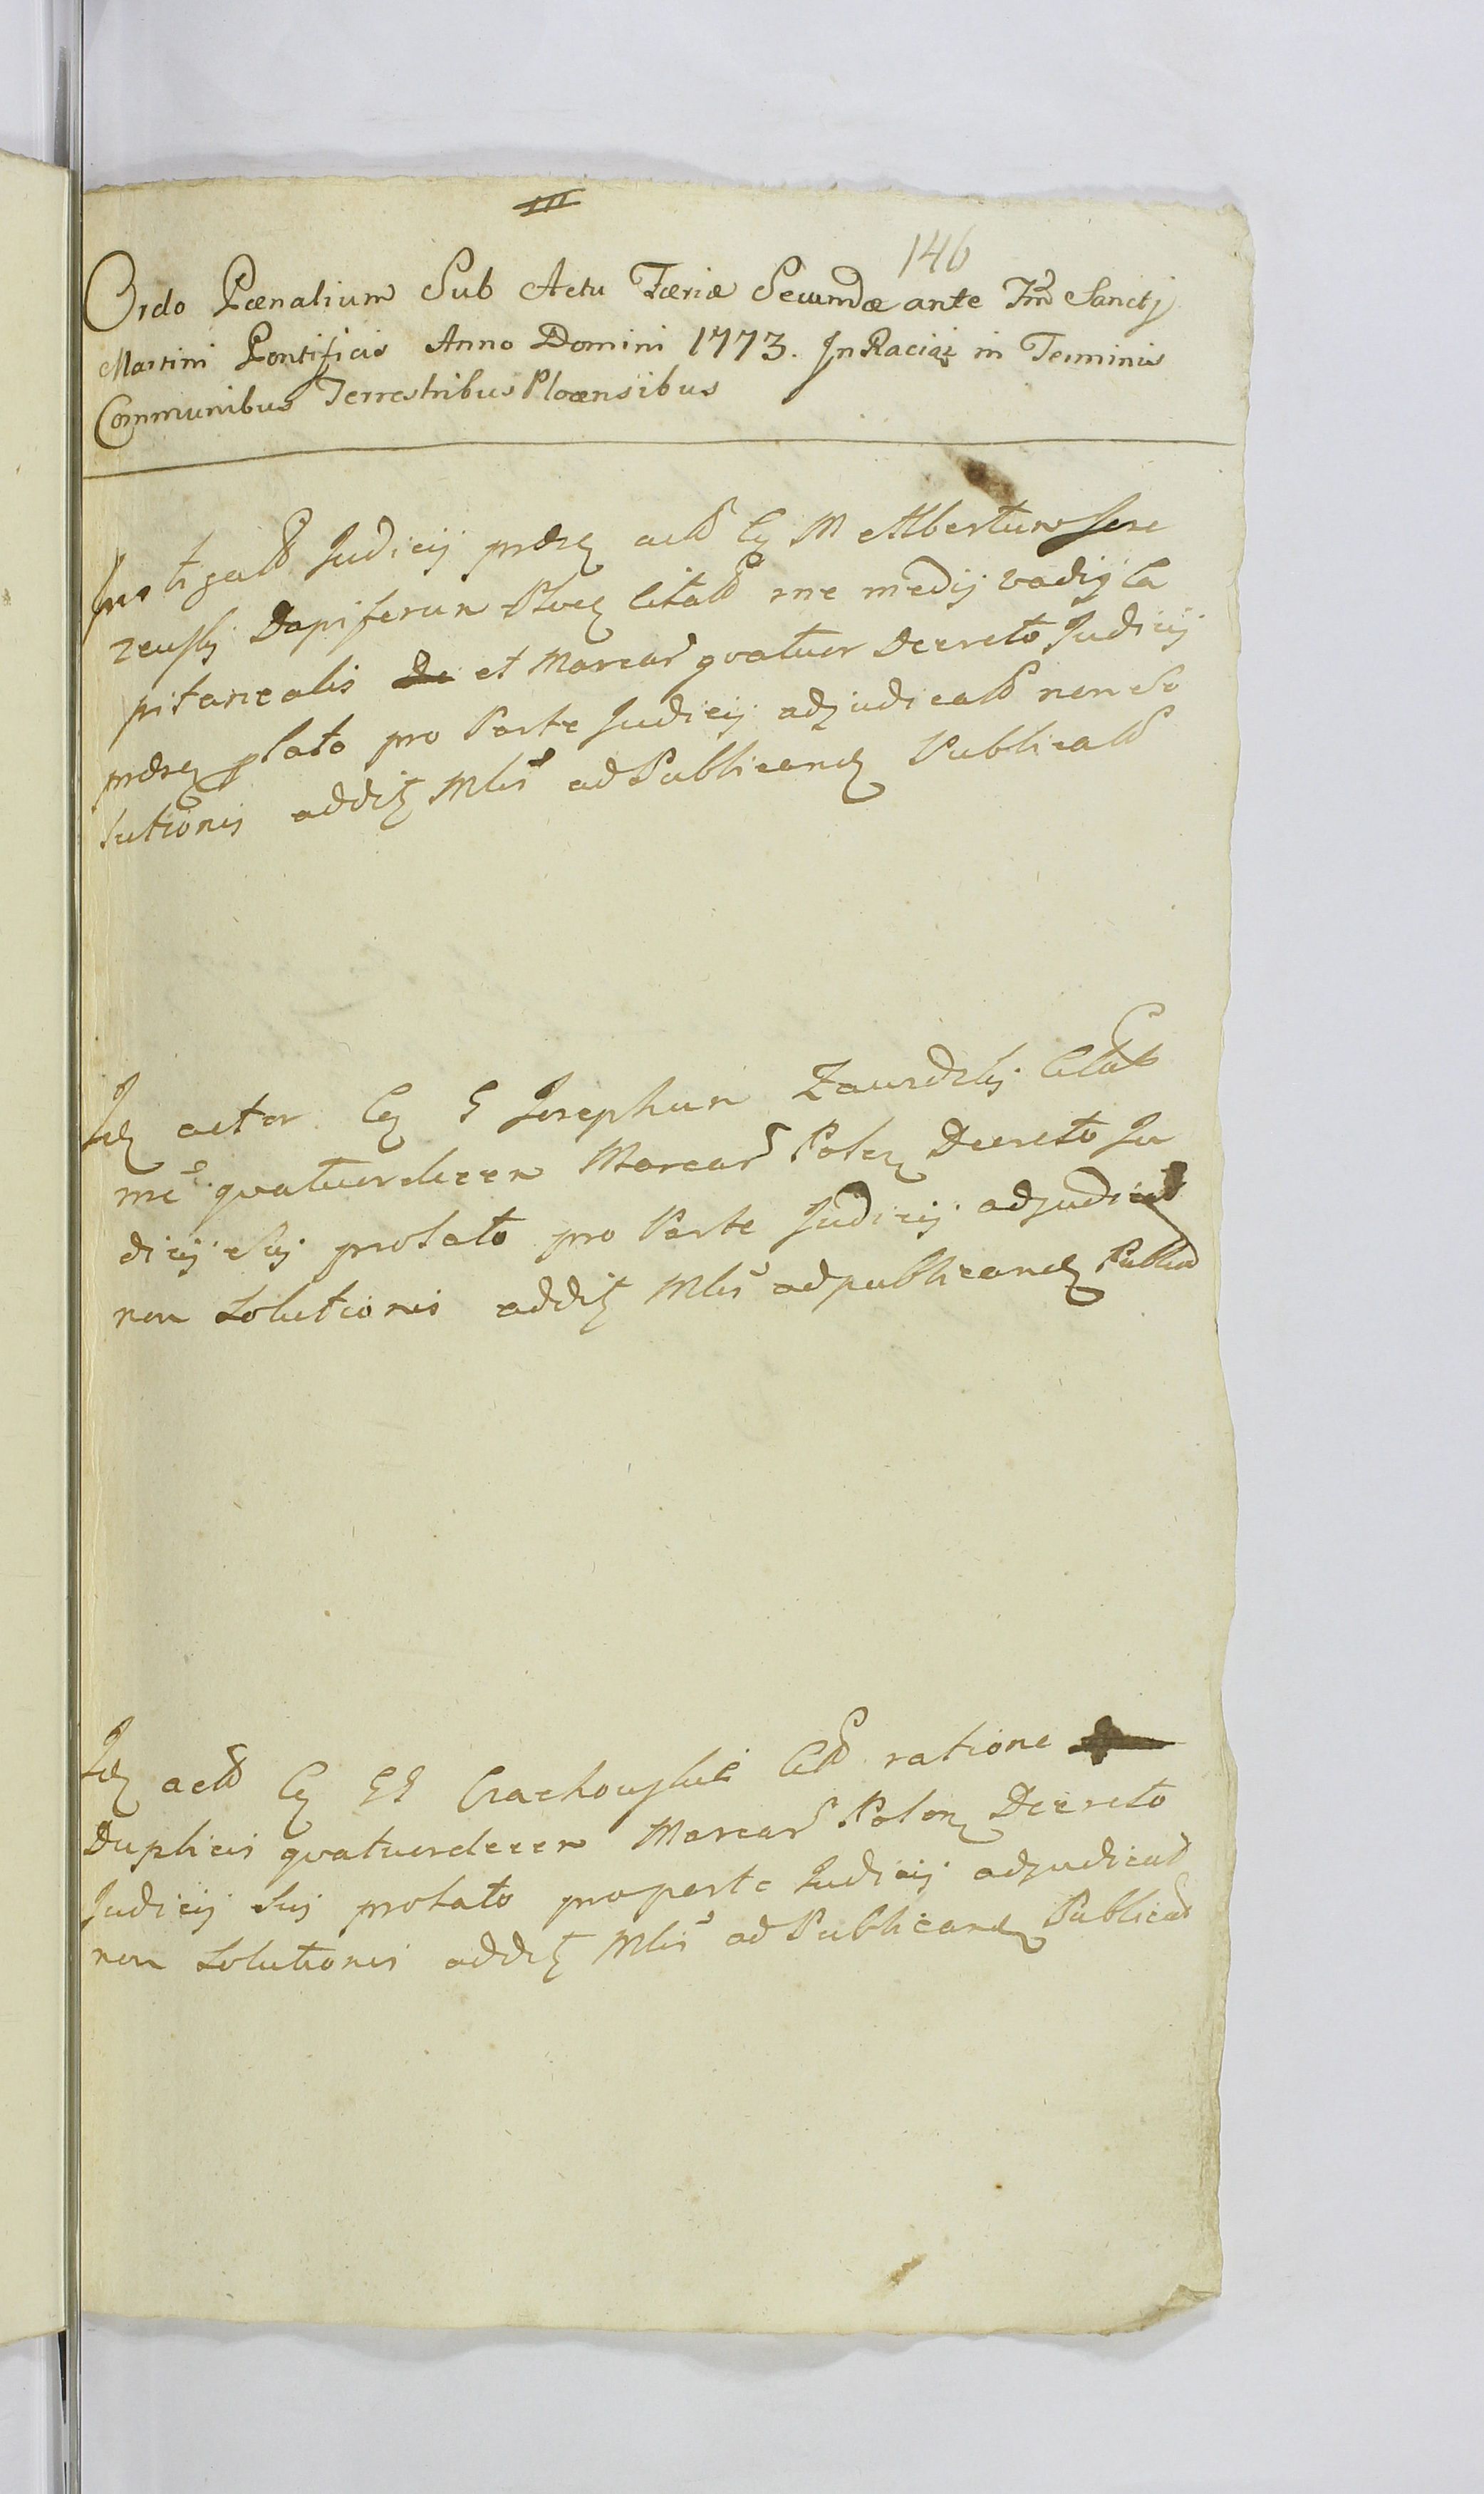 III
146
Ordo Pœnalium Sub Actu Fœriæ Secundæ ante Fm̃ Sanctj
Martini Pontificis Anno Domini 1773. In Raciąż in Terminis
Communibus Terrestribus Plocensibus
Judicij præs act C M Albertum Jese
Dapiferum Ploc Citat rne medij vadij Ca
pitanealis et Marcar quatuor Decreto Judicij
præs plato pro Parte Judicij adjudicat non So
lutionis addit Mlis ad Publicand Publicat
Id actor C G Josephum Zawidzkj Citat
rne quatuordecem Marcar Polon Decreto Ju
dicij Suj prolato pro Parte Judicij adjudicat
non Solutionis addit Mlis ad publicand Publicat
Id act C GG Crachowskie Cit ratione
Duplicis quatuordecem Marcar Polon Decreto
Judicij Suj prolato pro parte Judicij adjudicat
non Solutionis addit Mlis ad Publicand Publicat